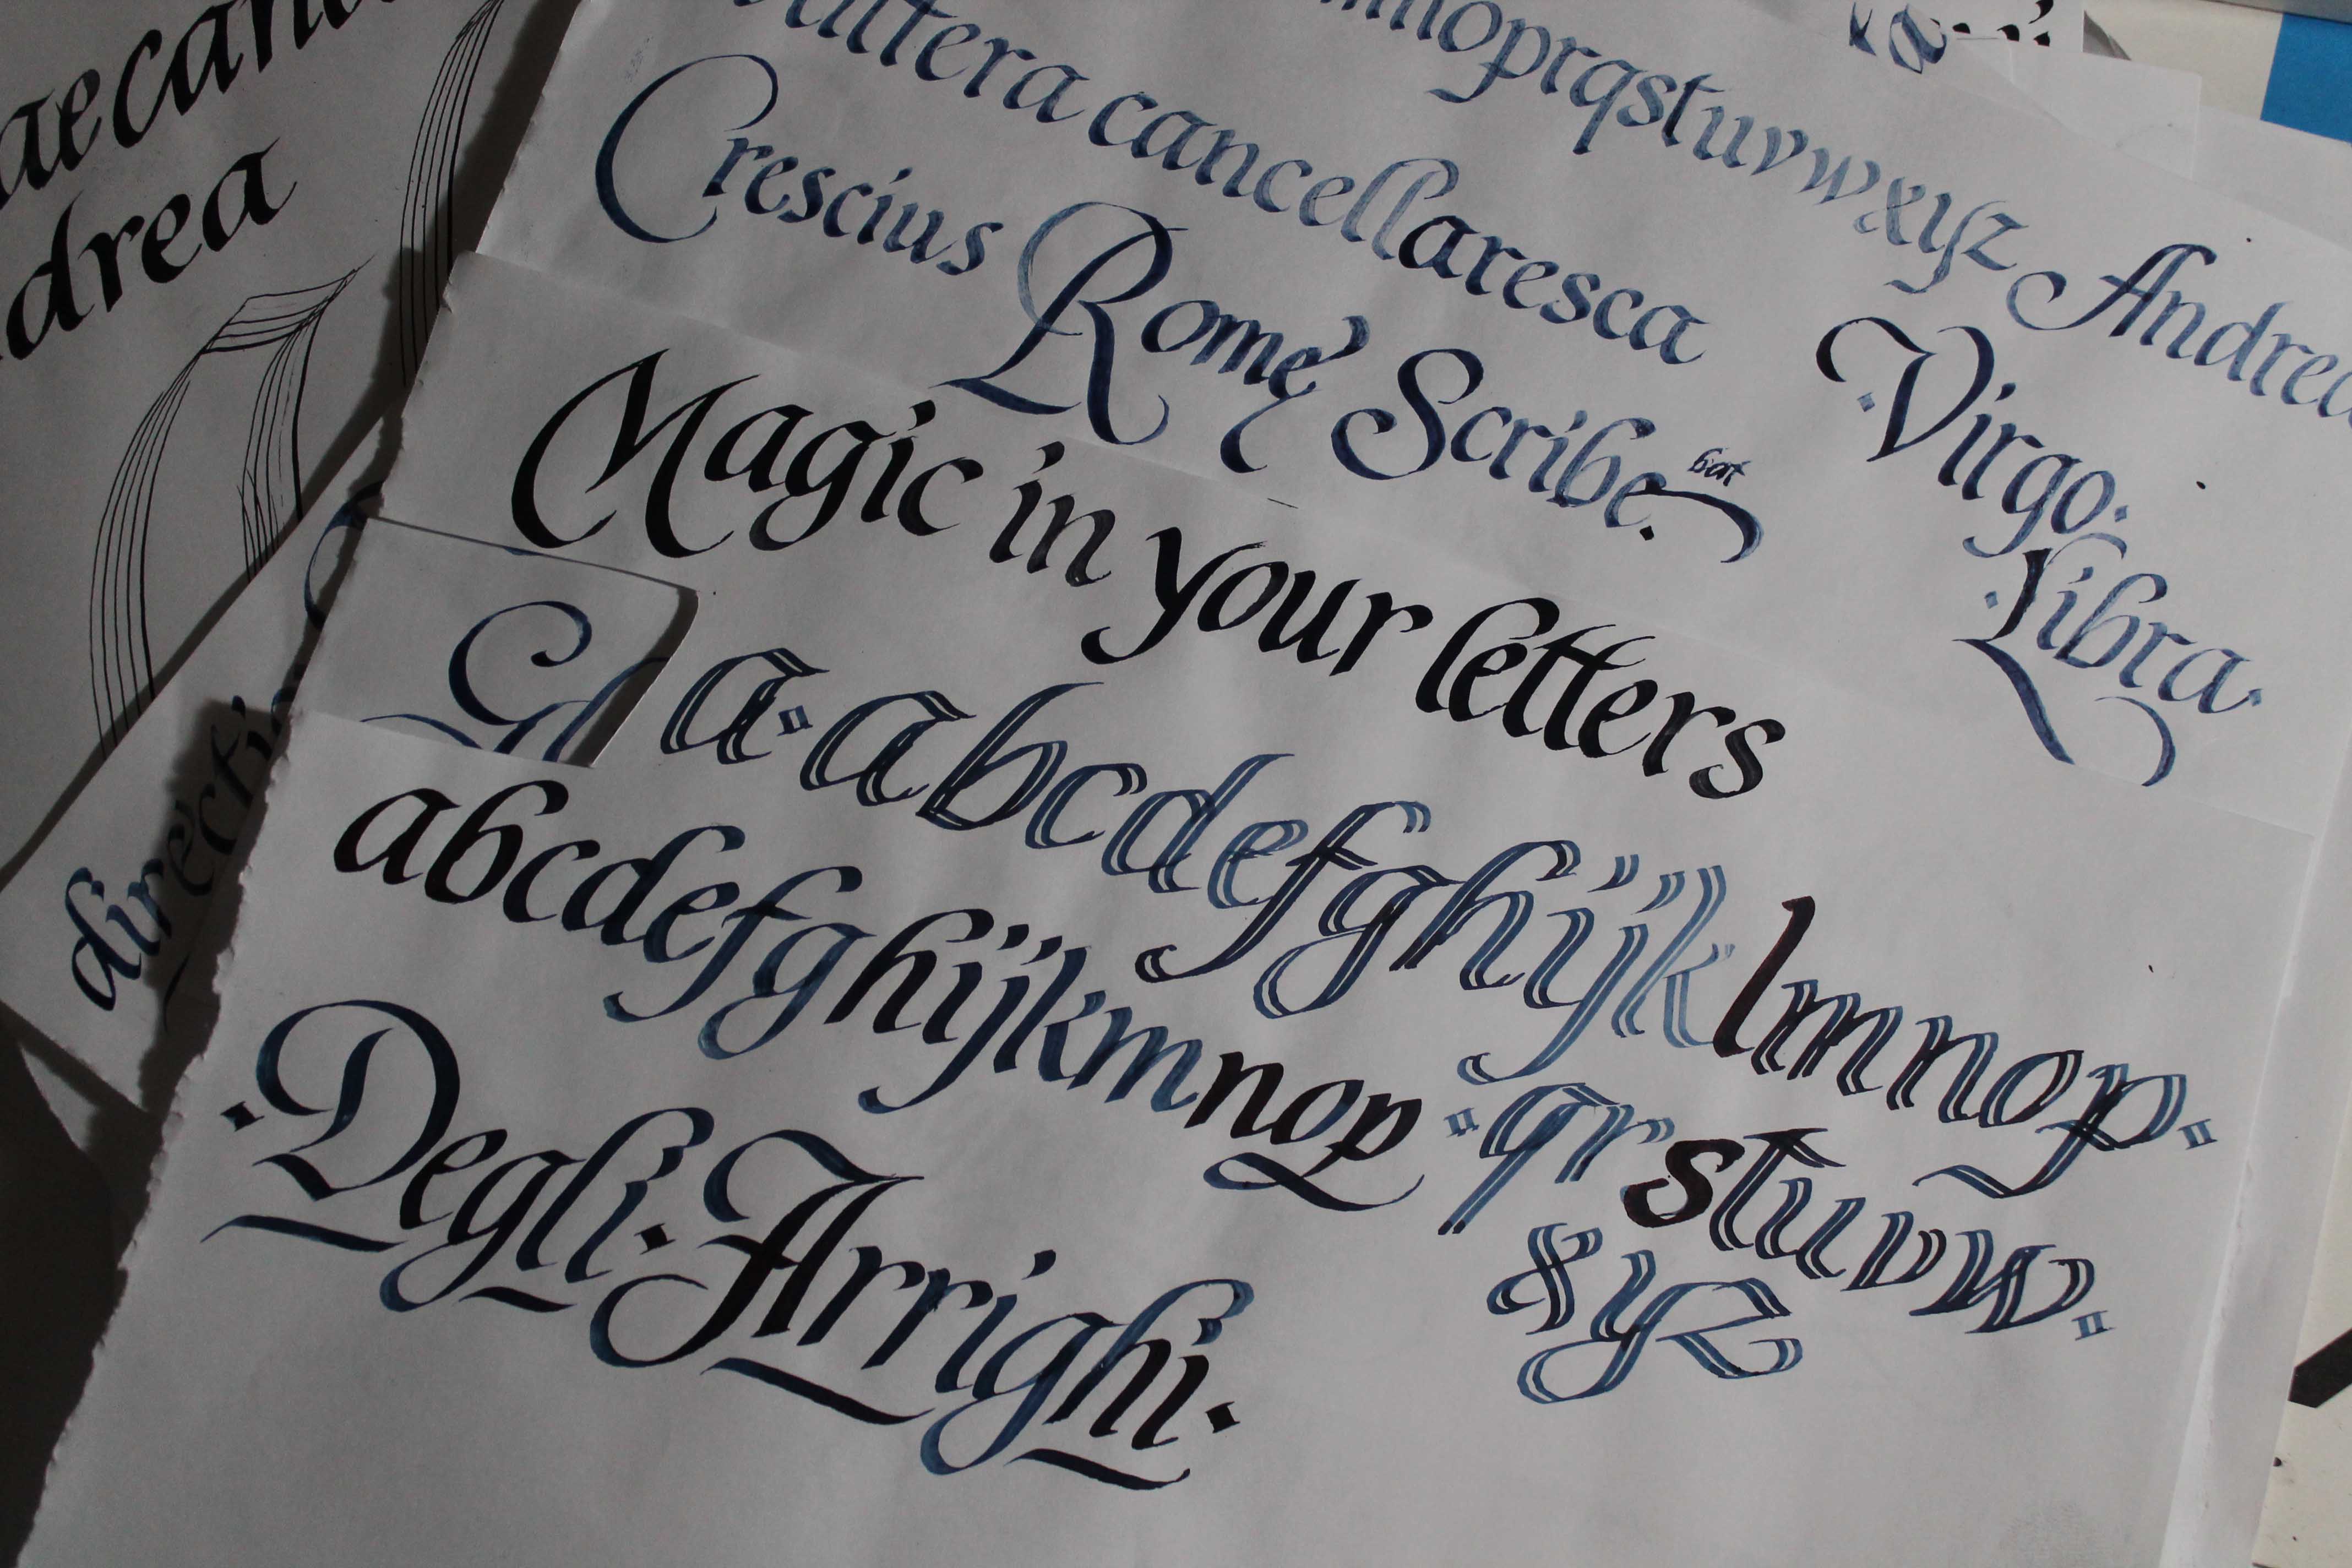 drea
cancellaresca
mnoprqstuvwxyz Andrea
Crescius Rome Scribe.
Virgo.
Libra.
Magic in your letters
a a b c d e f g h i j k l m n o p
q r s t u v w
x y z
abcdefghijkmnop
Degli Arrighi